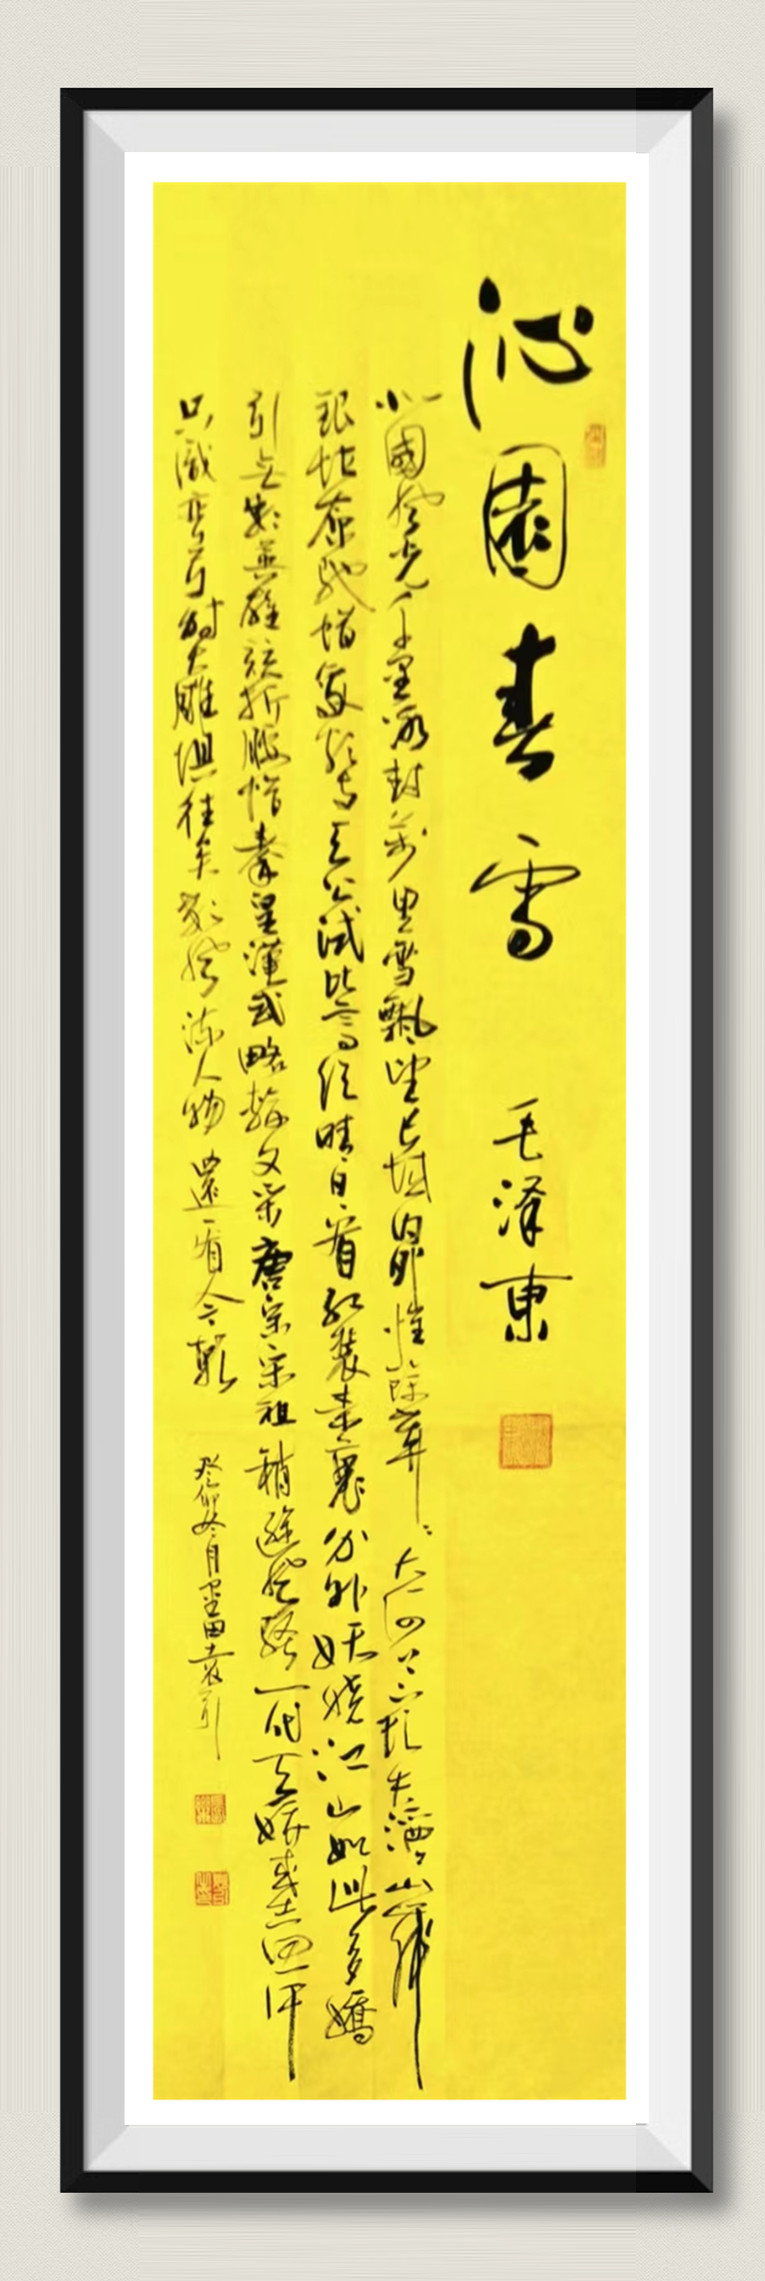 沁園春雪 毛泽東
北國風光千里冰封萬里雪飄望長城内外惟餘莽〻大河上下頓失滔〻山舞
銀蛇原馳蠟象欲與天公試比高須晴日看紅裝素裹分外妖嬈江山如此多嬌
引無數英雄競折腰惜秦皇漢武略輸文采唐宗宋祖稍遜風騷一代天驕成吉思汗
只識彎弓射大雕俱往矣數風流人物還看今朝 癸卯冬月墨田袁引